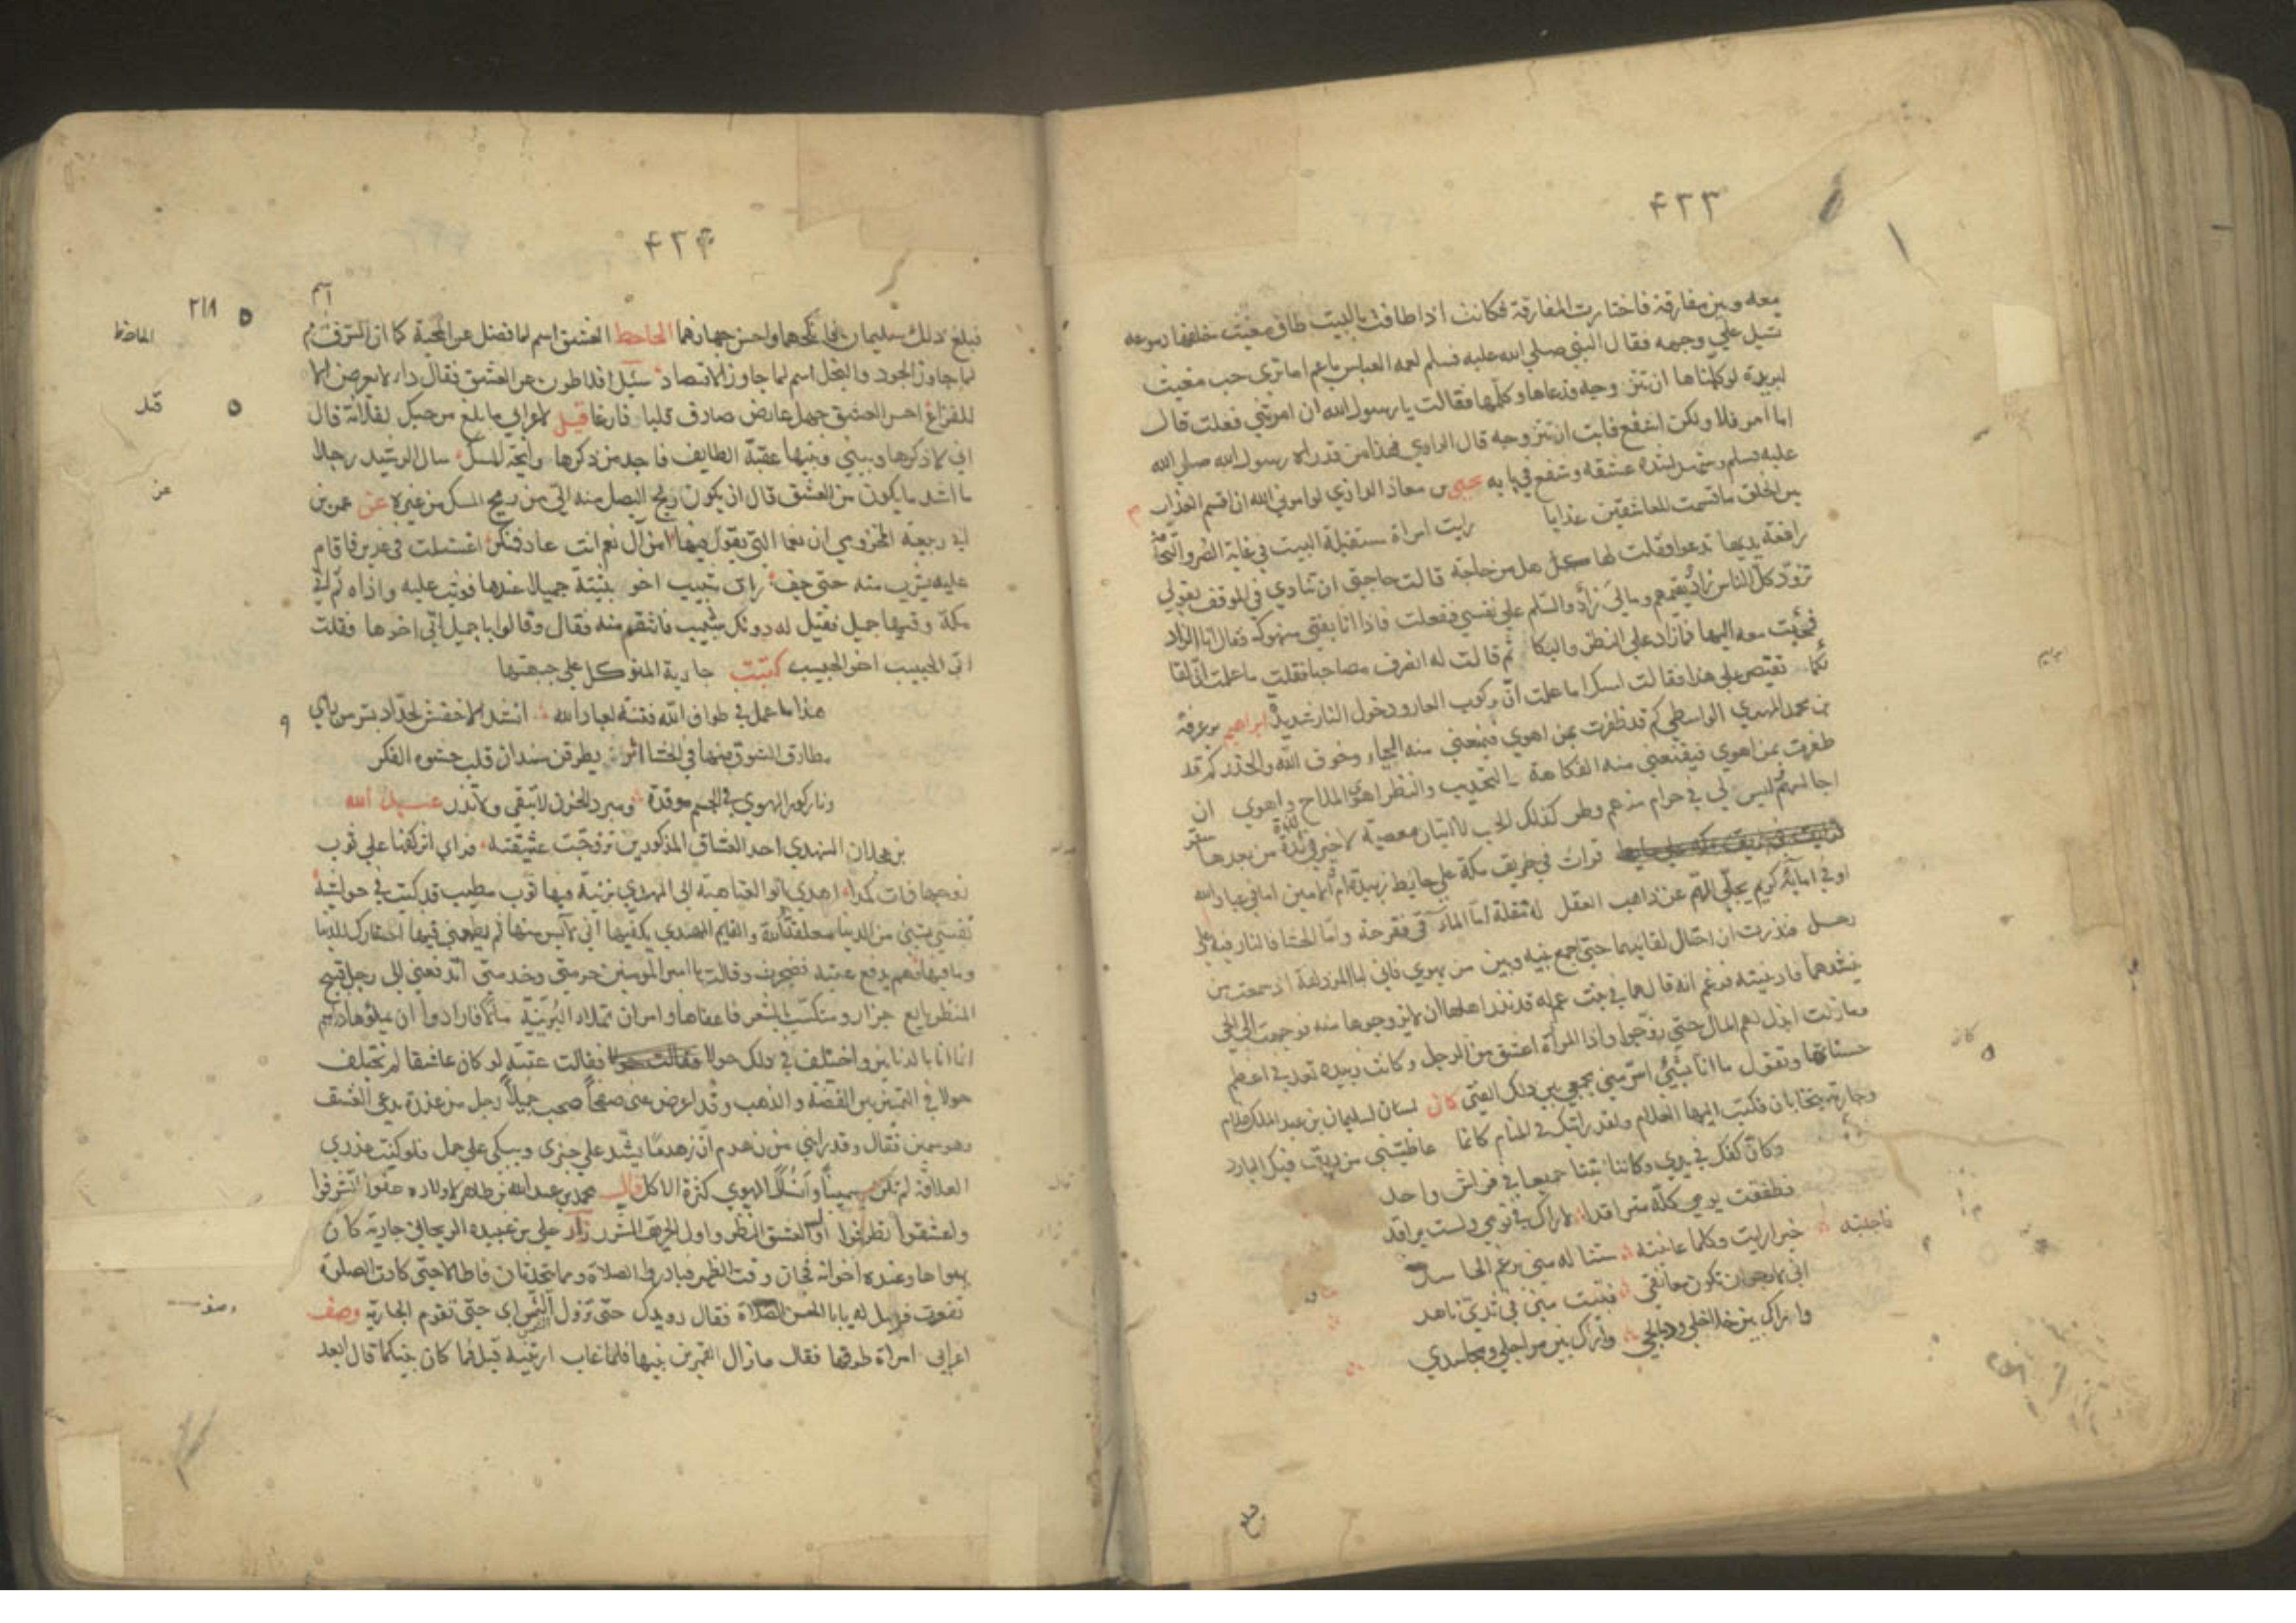 ۴۲۳
معه وبين مفارقته فاختارت المفارقة فكانت اذا طافت بالبيت طاف مغيث خلفها ودموعه
تسيل علي وجهه فقال النبي صلي الله عليه وسلم لعمه العباس يا عم اما تري حب مغيث
لبريدة لو كلمناها ان تتزوجه فدعاها وكلمها فقالت يا رسول الله ان امرتني فعلت قال
اما امر فلا ولكن اشفع فابت ان تتزوجه قال الراوي فهذا من قدراه رسول الله صلي الله
عليه وسلم وشهد لشدة عشقه وشفع في بابه يحيي بن معاذ الرازي لو امرني الله ان اقسم العذاب
بين الخلق ما قسمت للعاشقين عذابا رايت امراة مستقبلة البيت في غاية الضر والنحافة
رافعة يديها تدعوا فقلت لها هل من حاجة قالت حاجتي ان تنادي في الموقف بقولي
تزود كل الناس زادا يقيهم ومالي زاد والسلم علي نفسي ففعلت فاذا انا بفتي منهوك فقال انا الزاد
فجئت معه اليها فما زاد علي النظر والبكا ثم قالت له انصرف مصاحبا فقلت ما علمت ان لقا
كما يقتصر علي هذا فقالت اسكت اما علمت ان ركوب العار ودخول النار شديد ابراهيم بن عرفة
بن محمد المهدي الواسطي كم قد ظفرت بمن اهوي فيمنعني منه الحياء وخوف الله والحذر كم قد
ظفرت بمن اهوي فيقنعني منه الفكاهة والتحديث والنظر اهوي الملاح واهوي ان
اجالسهم ليس لي في حرام منهم وطر كذلك الحب لا اتيان معصية لا خير في لذة من بعدها سقر
قرات في طريق مكة علي حايط زبيدة ام الامين اما في عباد الله
او في امائه كريم يجلي الهم عن ذاهب العقل له مقلة اما المآقي فقرحة واما الحشا فالنار فيه علي
رجل فنذرت ان احتال لقائلهما حتي اجمع بينه وبين من يهوي فاني لبالمزدلفة اذ سمعت من
ينشدهما فادنيته فزعم انه قالهما في بنت عم له قد نذر اهلها ان لا يزوجوها منه فوجهت الي الحي
وما زلت ابذل لهم المال حتي زوجوا واذا المراة اعشق من الرجل وكانت زبيدة تعده في اعظم
حسناتها وتقول ما انا بشيء اسر مني بجمعي بين ذلك الفتي كان لسان لسليمان بن عبد الملك غلام
وجارية يتحابان فكتب اليها الغلام ولقد رايتك في المنام كانما عاطيتني من ريق فيك البارد
وكان كفك في يدي وكاننا بتنا جميعا في فراش واحد
فطفقت يومي كله متراقدا لاراك في نومي ولست براقد
فاجابته خيرا رايت وكلما عاينته ستناله مني برغم الحاسد
اني لارجو ان تكون معانقي فتبيت مني في ثدي ناهد
واراك بين خلاخلي ودمالجي واراك بين مراجلي ومجاسدي
ابراهيم
كان
۴۲۴
۲۱۸
الجاحظ
قد
عن
وصف
فبلغ ذلك سليمان فانكحهما واحسن جهازهما الجاحظ العشق اسم لما فضل عن المحبة كما ان السرف اسم
لما جاوز الجود والبخل اسم لما جاوز الاقتصاد سئل افلاطون عن العشق فقال داء لا يعرض الا
للفراغ احسر العشق جهل عارض صادف قلبا فارغا قيل لاعرابي ما بلغ من حبك لفلانة قال
اني لاذكرها وبيني وبينها عقبة الطايف فاجد من ذكرها رايحة المسك سال الرشيد رجلا
ما اشد ما يكون من العشق قال ان يكون ريح البصل منه الي من ريح المسك من غيره عن عمر بن
ابي ربيعة المخزومي ان نعما التي يقول فيها امن آل نعم انت غاد فمبكر اغتسلت في غدير فاقام
عليه يشرب منه حتي جف راي شبيب اخو بثينة جميلا عندها فوثب عليه واذاه ثم اتي
مكة وفيها جميل فقيل له دونك شبيب فانتقم منه فقال وقالوا يا جميل اتي اخوها فقلت
اتي الحبيب اخو الحبيب كتبت جارية المتوكل علي جبهتها
هذا ما عمل في طراز الله فتنة لعباد الله انشد الاخفش لحداد بسر من راي
مطارق الشوق منها في الحشا اثر يطرقن سندان قلب حشوه الفكر
ونار كور الهوي في الجسم موقدة ومبرد الحزن لا يبقي ولا يذر عبد الله
بن عجلان النهدي احد العشاق المذكورين تزوجت عشيقته فراي اثر كفها علي ثوب
زوجها فمات كمدا اهدي ابو العتاهية الي المهدي برنية فيها ثوب مطيب قد كتب في حواشيه
نفسي بشيء من الدنيا معلقة الله والقايم المهدي يكفيها اني لآيس منها ثم يطمعني فيها احتقارك للدنيا
وما فيها فهم بدفع عتبة فضجرت وقالت يا امير المومنين حرمتي وخدمتي اتدفعني الي رجل قبيح
المنظر بايع جرار ومتكسب بالشعر فاعفاها وامر ان تملاء البرنية مالا فارادوا ان يملؤها دراهم
انا انا بالدنانير واختلف في ذلك حولا فقالت عتبة لو كان عاشقا لم يختلف
حولا في التمييز بين الفضة والذهب وقد اعرض عني صفحا صحب جميلا رجل من عذرة يدعي العشق
وهو سمين فقال وقد رابني من زهدم ان زهدما يشد علي خبزي ويبكي علي جمل فلو كنت عذري
العلاقة لم تكن سمينا وانساك الهوي كثرة الاكل قال محمد بن عبد الله بن طاهر لاولاده عفوا تشرفوا
واعشقوا تظرفوا اول العشق النظر واول الحريق الشرر زار علي بن عبيدة الريحاني جارية كان
يهواها وعنده اخوانه فحان وقت الظهر فبادروا الصلاة وهما يتحدثان فاطالا حتي كادت الصلوة
تفوت فقيل له يابا الحسن الصلاة فقال رويدك حتي تزول الشمس اي حتي تقوم الجارية وصف
اعرابي امراة طرقها فقال ما زال القمر يرينيها فلما غاب ارتنيه قيل فما كان بينكما قال ابعد